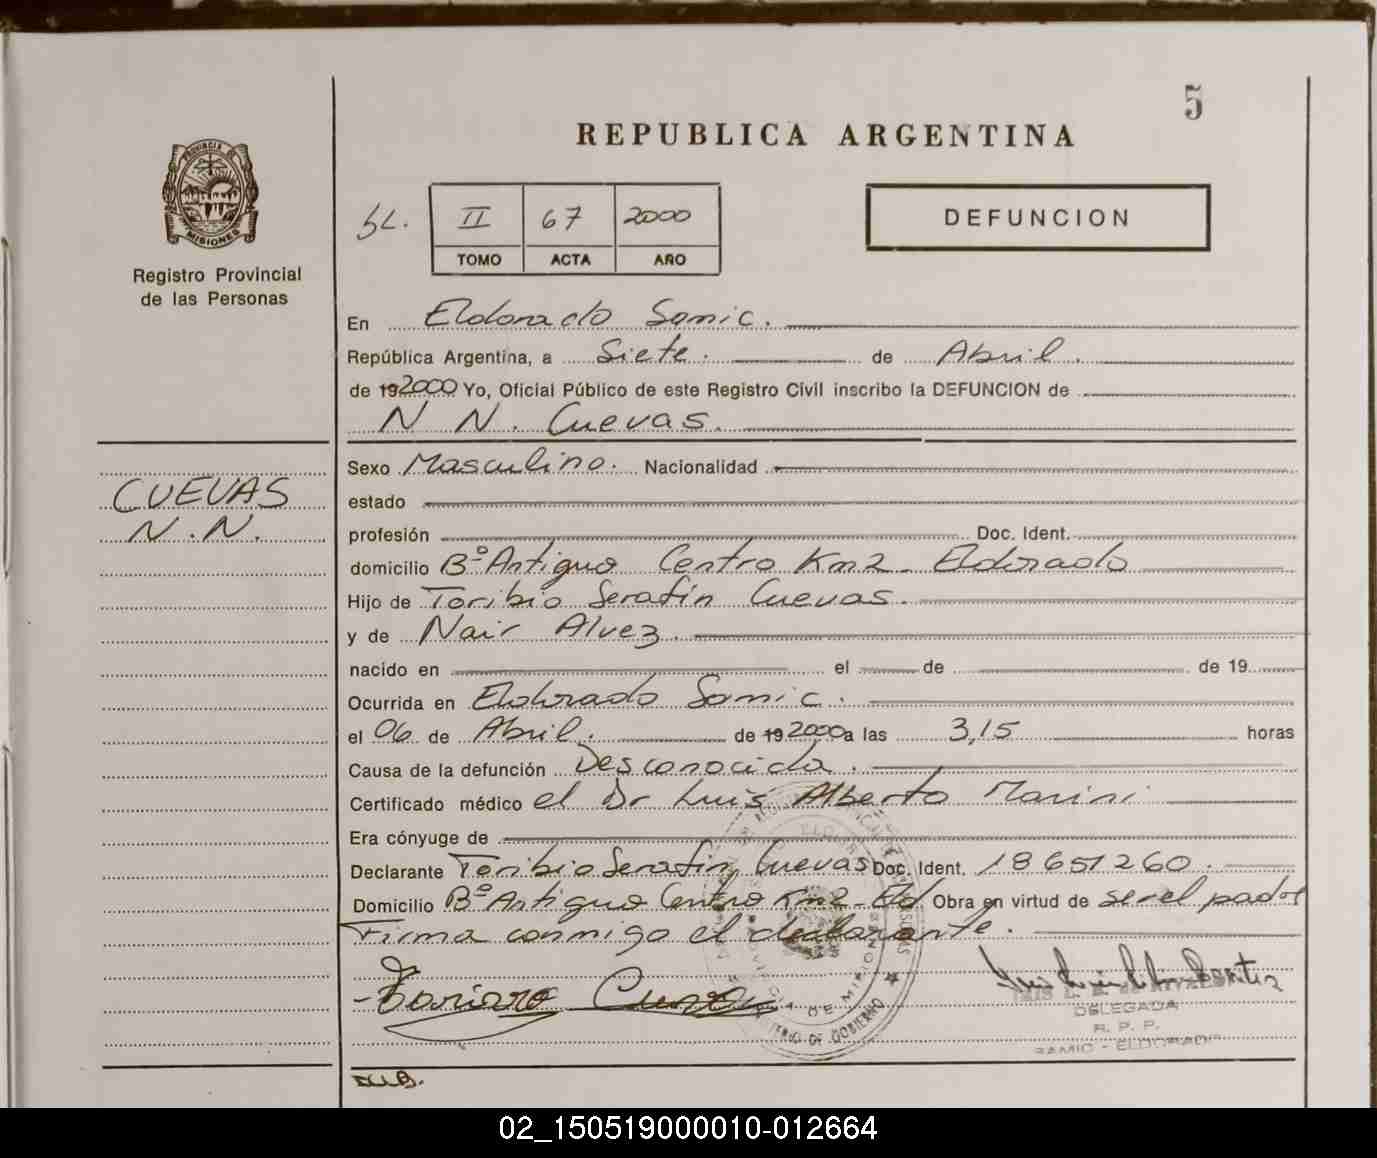 5
REPUBLICA ARGENTINA
PROVINCIA DE
MISIONES
Registro Provincial
de las Personas
SL.
II 67 2000
TOMO ACTA AÑO
DEFUNCION
En Eldorado Samic.
República Argentina, a Siete. de Abril.
de 192000 Yo, Oficial Público de este Registro Civil inscribo la DEFUNCION de
N N. Cuevas.
CUEVAS
N.N.
Sexo Masculino. Nacionalidad
estado
profesión Doc. Ident.
domicilio Bº Antiguo Centro Km2 - Eldorado
Hijo de Toribio Serafin Cuevas.
y de Nair Alvez.
nacido en el de de 19
Ocurrida en Eldorado Samic.
el 06 de Abril. de 192000 a las 3,15 horas
Causa de la defunción Desconocida.
Certificado médico el Dr Luis Alberto Marini
Era cónyuge de
Declarante Toribio Serafin Cuevas Doc. Ident. 18651260.
Domicilio Bº Antiguo Centro Km2 - Eld. Obra en virtud de ser el padre
Firma conmigo el declarante.
DELEGADA
R. P. P.
SAMIC - ELDORADO
02_150519000010-012664